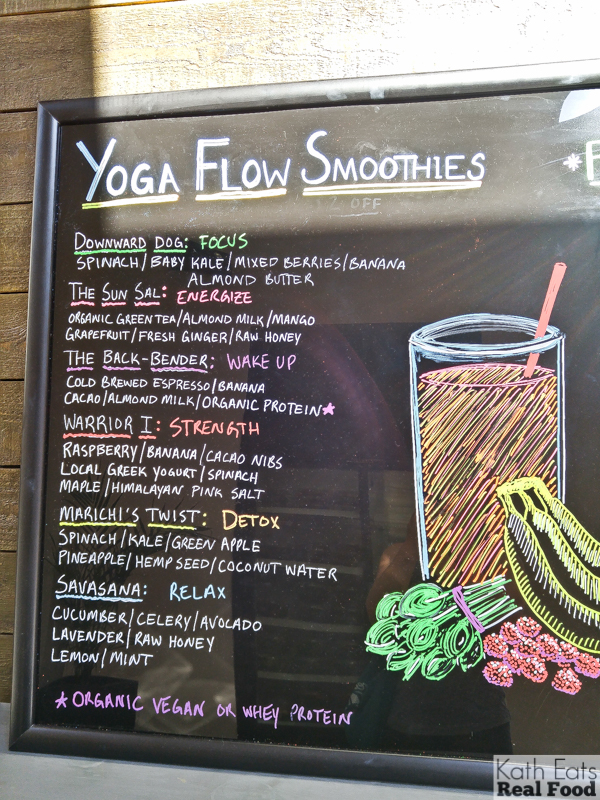 YOGA FLOW SMOOTHIES
2 OFF
DOWNWARD DOG: FOCUS
SPINACH/BABY KALE/MIXED BERRIES/BANANA
ALMOND BUTTER
THE SUN SAL: ENERGIZE
ORGANIC GREEN TEA/ALMOND MILK/MANGO
GRAPEFRUIT/FRESH GINGER/RAW HONEY
THE BACK-BENDER: WAKE UP
COLD BREWED ESPRESSO/BANANA
CACAO/ALMOND MILK/ORGANIC PROTEIN*
WARRIOR I: STRENGTH
RASPBERRY/BANANA/CACAO NIBS
LOCAL GREEK YOGURT/SPINACH
MAPLE/HIMALAYAN PINK SALT
MARICHI'S TWIST: DETOX
SPINACH/KALE/GREEN APPLE
PINEAPPLE/HEMP SEED/COCONUT WATER
SAVASANA: RELAX
CUCUMBER/CELERY/AVOCADO
LAVENDER/RAW HONEY
LEMON/MINT
*ORGANIC VEGAN OR WHEY PROTEIN
Kath Eats
Real Food